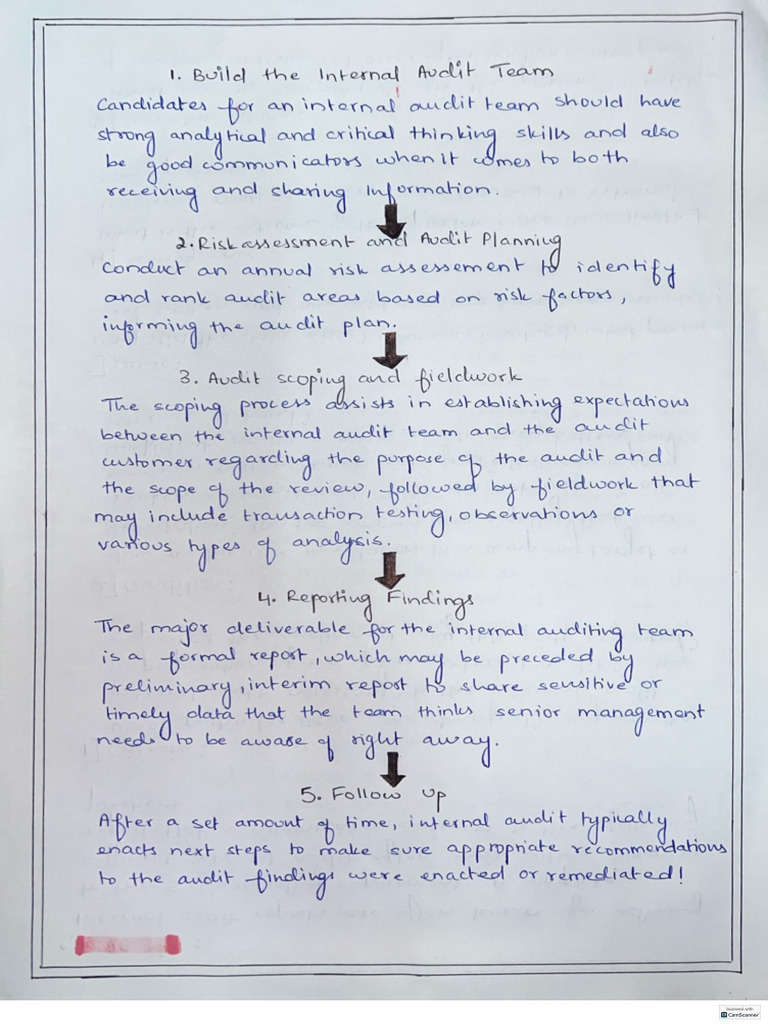 1. Build the Internal Audit Team
Candidates for an internal audit team should have
strong analytical and critical thinking skills and also
be good communicators when it comes to both
receiving and sharing Information.
2. Risk assessment and Audit Planning
Conduct an annual risk assessement to identify
and rank audit areas based on risk factors,
informing the audit plan.
3. Audit scoping and fieldwork
The scoping process assists in establishing expectations
between the internal audit team and the audit
customer regarding the purpose of the audit and
the scope of the review, followed by fieldwork that
may include transaction testing, observations or
various types of analysis.
4. Reporting Findings
The major deliverable for the internal auditing team
is a formal report, which may be preceded by
preliminary, interim report to share sensitive or
timely data that the team thinks senior management
needs to be aware of right away.
5. Follow Up
After a set amount of time, internal audit typically
enacts next steps to make sure appropriate recommendations
to the audit findings were enacted or remediated!
Scanned with
CamScanner